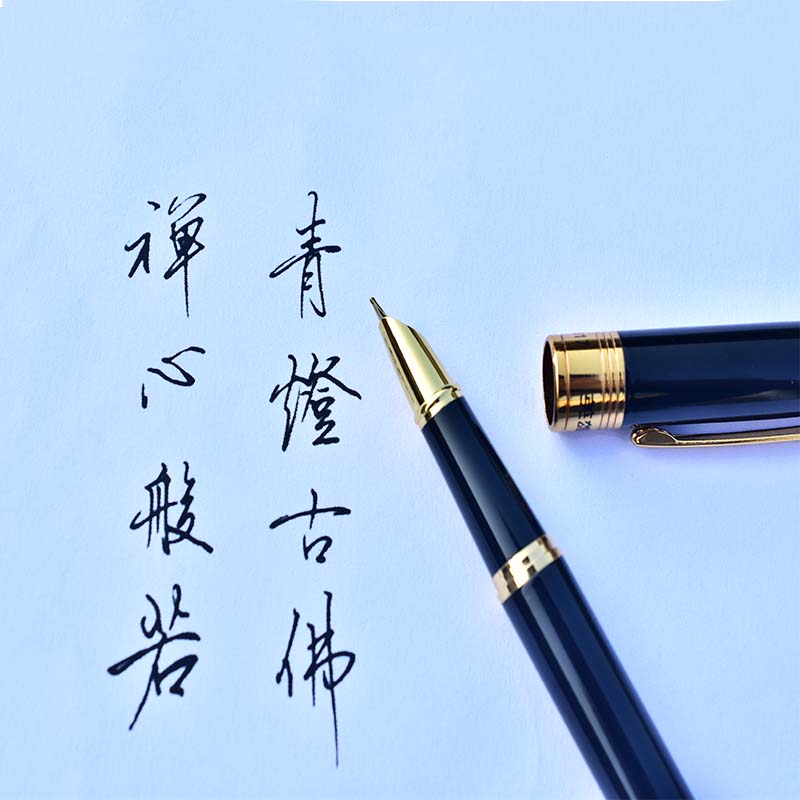 青燈古佛
禪心般若